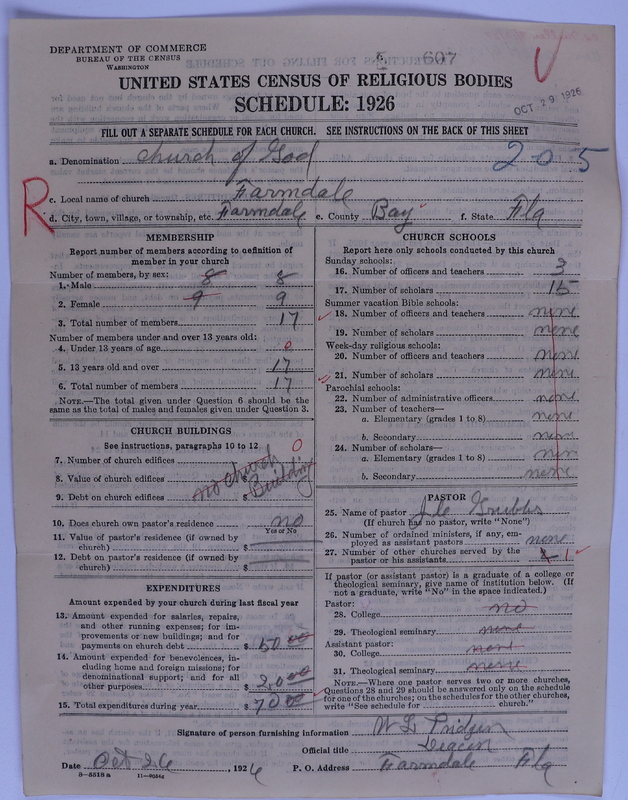 DEPARTMENT OF COMMERCE
BUREAU OF THE CENSUS
WASHINGTON
5 607
UNITED STATES CENSUS OF RELIGIOUS BODIES
SCHEDULE: 1926
OCT 29 1926
FILL OUT A SEPARATE SCHEDULE FOR EACH CHURCH. SEE INSTRUCTIONS ON THE BACK OF THIS SHEET
a. Denomination church of God
205
R
c. Local name of church Farmdale
d. City, town, village, or township, etc. Farmdale e. County Bay f. State Fla
MEMBERSHIP
Report number of members according to definition of
member in your church
Number of members, by sex:
1. Male 8 8
2. Female 9 9
3. Total number of members 17
Number of members under and over 13 years old:
4. Under 13 years of age 0
5. 13 years old and over 17
6. Total number of members 17
NOTE.—The total given under Question 6 should be
same as the total of males and females given under Question 3.
CHURCH BUILDINGS
See instructions, paragraphs 10 to 12
7. Number of church edifices 0
8. Value of church edifices $
9. Debt on church edifices $
no church Building
10. Does church own pastor's residence no
Yes or No
11. Value of pastor's residence (if owned by
church) $
12. Debt on pastor's residence (if owned by
church) $
EXPENDITURES
Amount expended by your church during last fiscal year
13. Amount expended for salaries, repairs,
and other running expenses; for im-
provements or new buildings; and for
payments on church debt $ 50 00
14. Amount expended for benevolences, in-
cluding home and foreign missions; for
denominational support; and for all
other purposes $ 20 00
15. Total expenditures during year $ 70 00
CHURCH SCHOOLS
Report here only schools conducted by this church
Sunday schools:
16. Number of officers and teachers 3
17. Number of scholars 15
Summer vacation Bible schools:
18. Number of officers and teachers none
19. Number of scholars none
Week-day religious schools:
20. Number of officers and teachers none
21. Number of scholars none
Parochial schools:
22. Number of administrative officers none
23. Number of teachers—
a. Elementary (grades 1 to 8) none
b. Secondary none
24. Number of scholars—
a. Elementary (grades 1 to 8) none
b. Secondary none
PASTOR
25. Name of pastor Grubbs
(If church has no pastor, write "None")
26. Number of ordained ministers, if any, em-
ployed as assistant pastors none
27. Number of other churches served by the
pastor or his assistants 1
If pastor (or assistant pastor) is a graduate of a college or
theological seminary, give name of institution below. (If
not a graduate, write "No" in the space indicated.)
Pastor:
28. College no
29. Theological seminary none
Assistant pastor:
30. College none
31. Theological seminary none
NOTE.—Where one pastor serves two or more churches,
Questions 28 and 29 should be answered only on the schedule
for one of the churches; on the schedules for the other churches,
write "See schedule for church."
Signature of person furnishing information W L Pridgen
Official title Deacon
Date Oct 26, 1926 P. O. Address Farmdale Fla
8-5518 a 11-9054a